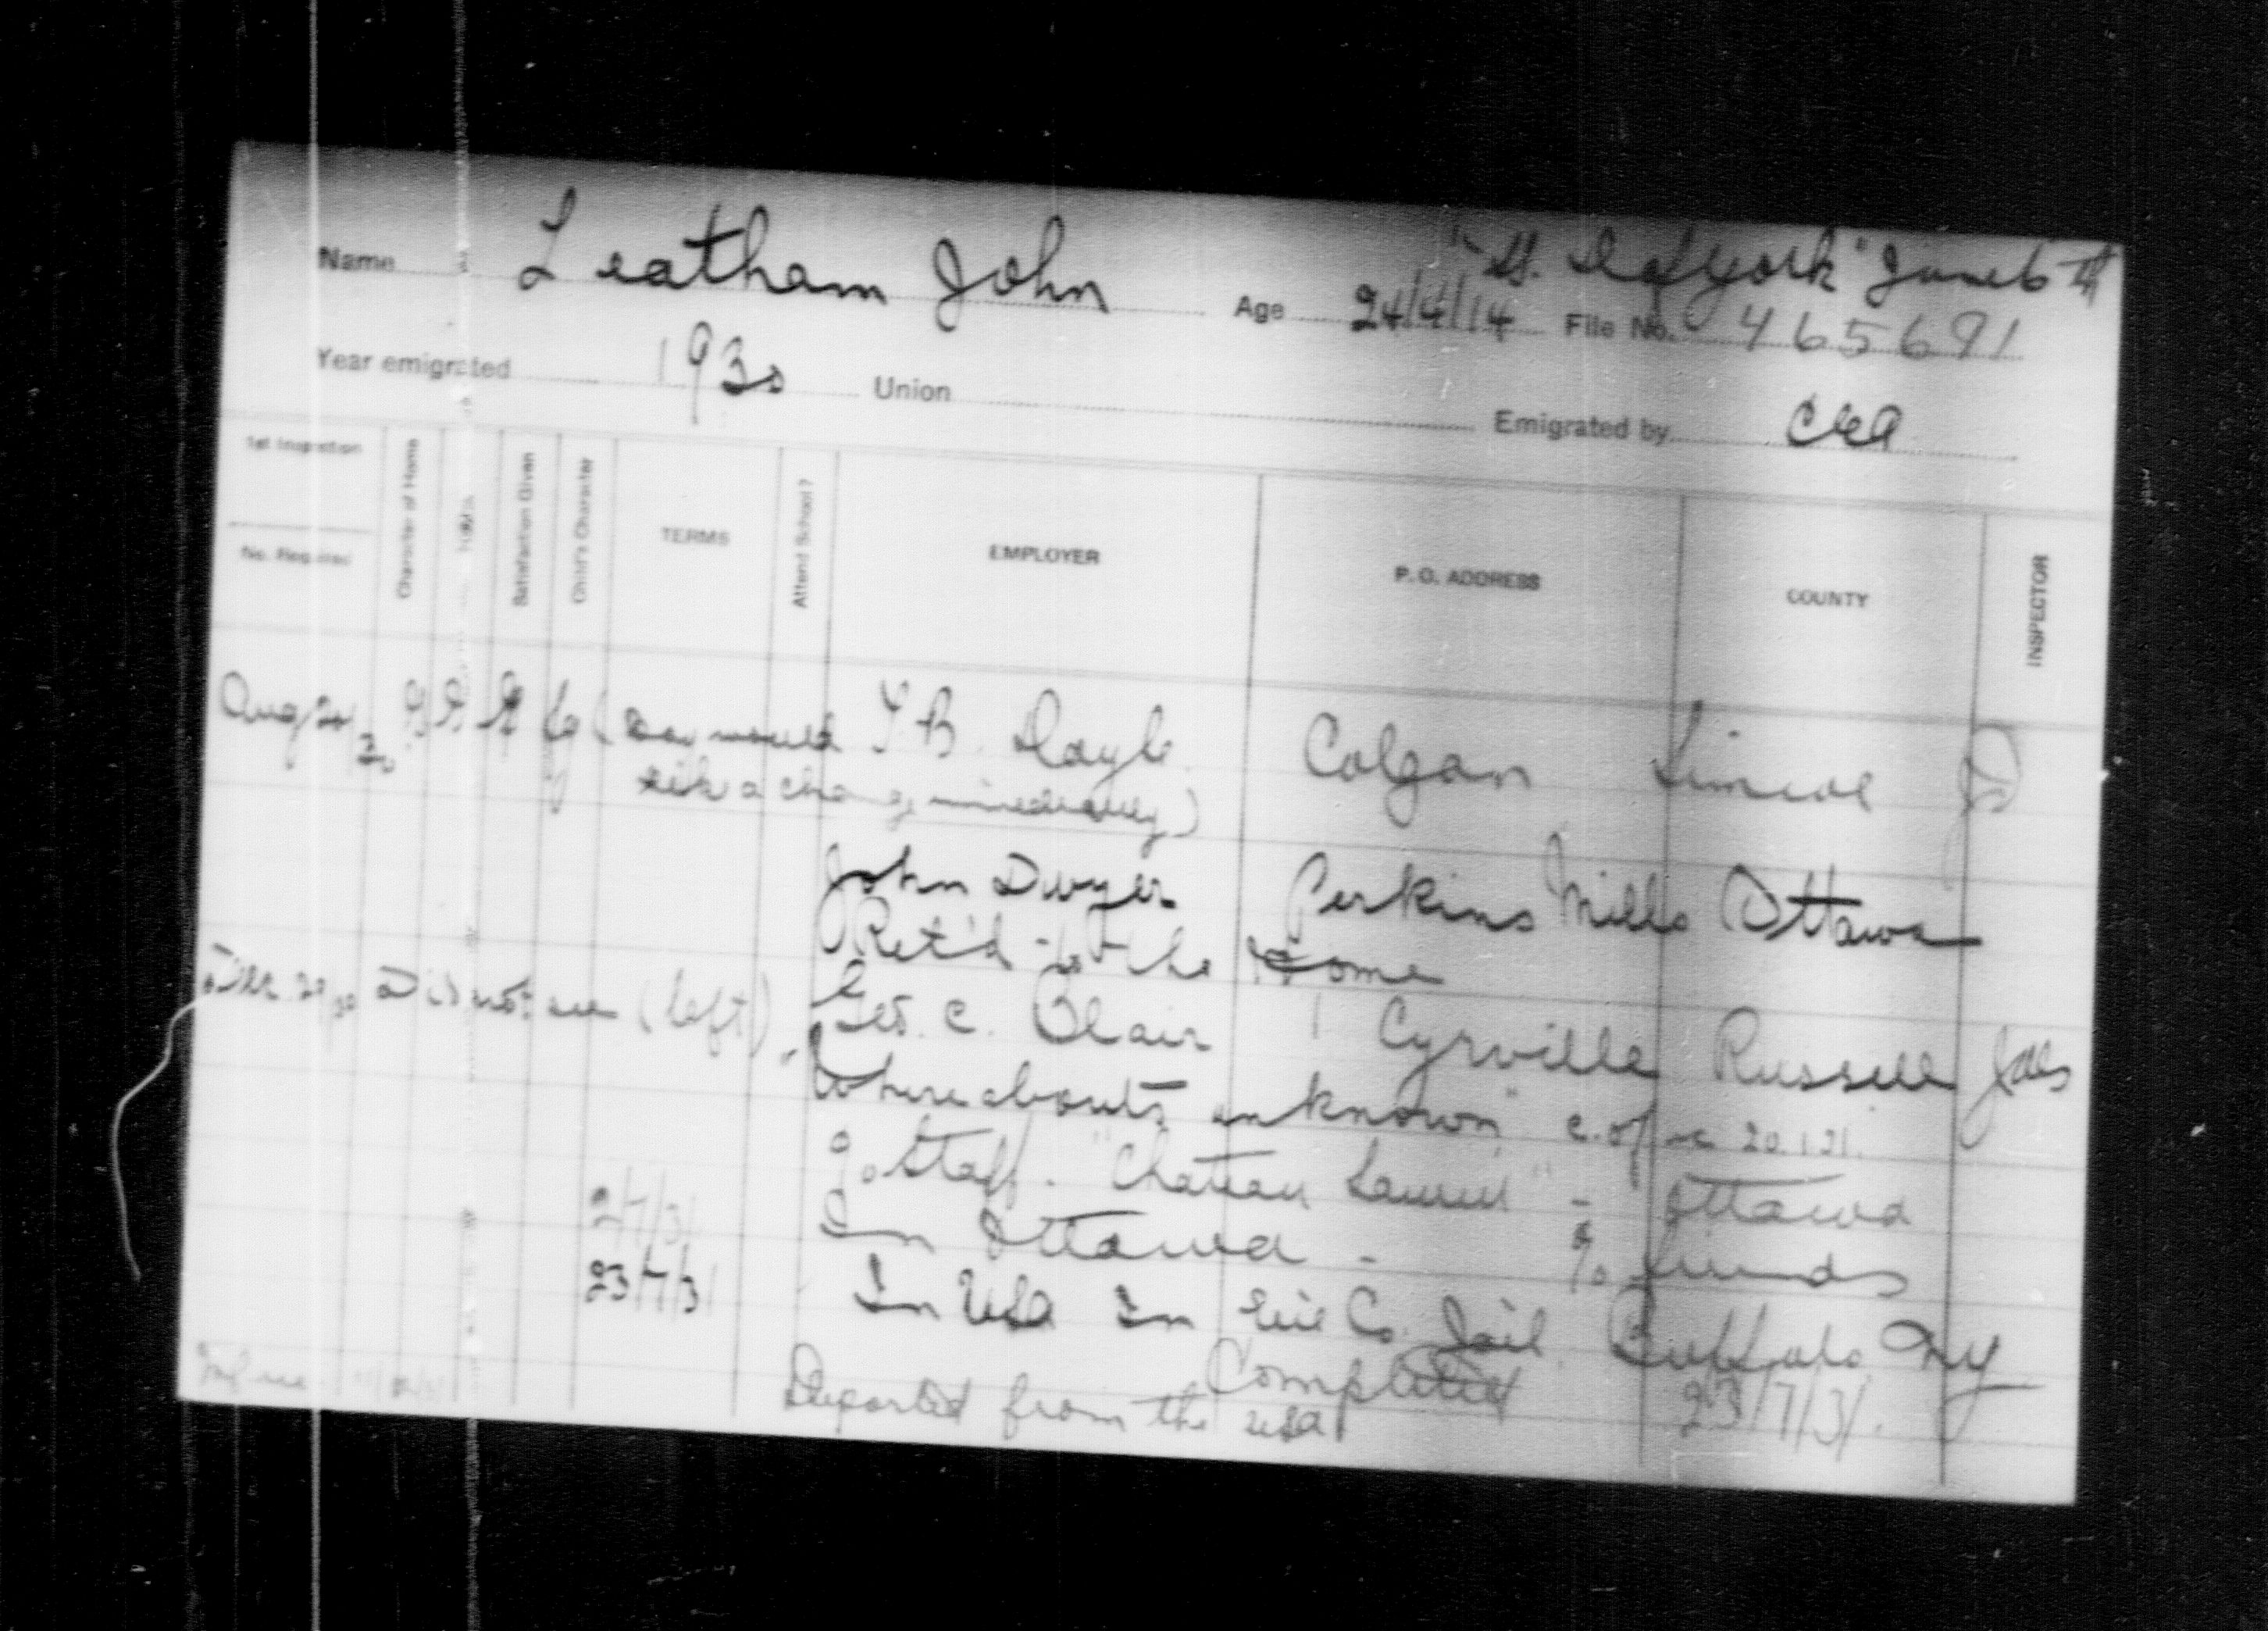 "D. of York" June 6th
Name Leatham John Age 24/4/14 File No. 465691
Year emigrated 1930 Union Emigrated by CEA
1st Inspection
No. Required
Character of Home
Satisfaction Given
Child's Character
TERMS
Attend School?
EMPLOYER
P. O. ADDRESS
COUNTY
INSPECTOR
Aug 24/30 G (Boy would T. B. Doyle Colgan Simcoe
risk a change immediately)
John Dwyer Perkins Mills Ottawa
Ret'd to the Home
Did not see (left) Geo. C. Blair Cyrville Russell
"Whereabouts unknown" 20.1.31.
c/o Staff. "Chateau Laurier" - Ottawa
2/7/31 In Ottawa - c/o friends
23/7/31 In USA In Erie Co. Jail. Buffalo. NY
Completed
Deported from the USA 23/7/31.